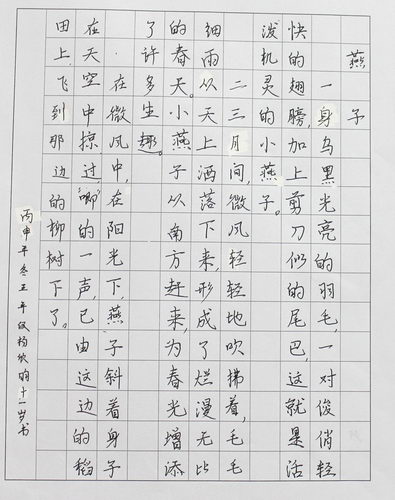 燕子
一身乌黑光亮的羽毛,一对俊俏轻
快的翅膀,加上剪刀似的尾巴,这就是活
泼机灵的小燕子。
二三月间,微风轻轻地吹拂着,毛毛
细雨从天上洒落下来,形成了烂漫无比
的春天。小燕子从南方赶来,为春光增添
了许多生趣。
在微风中,在阳光下,燕子斜着身子
在天空中掠过,“唧”的一声,已由这边的稻
田上,飞到那边的柳树下了。
丙申年冬五年级杨 十一岁书